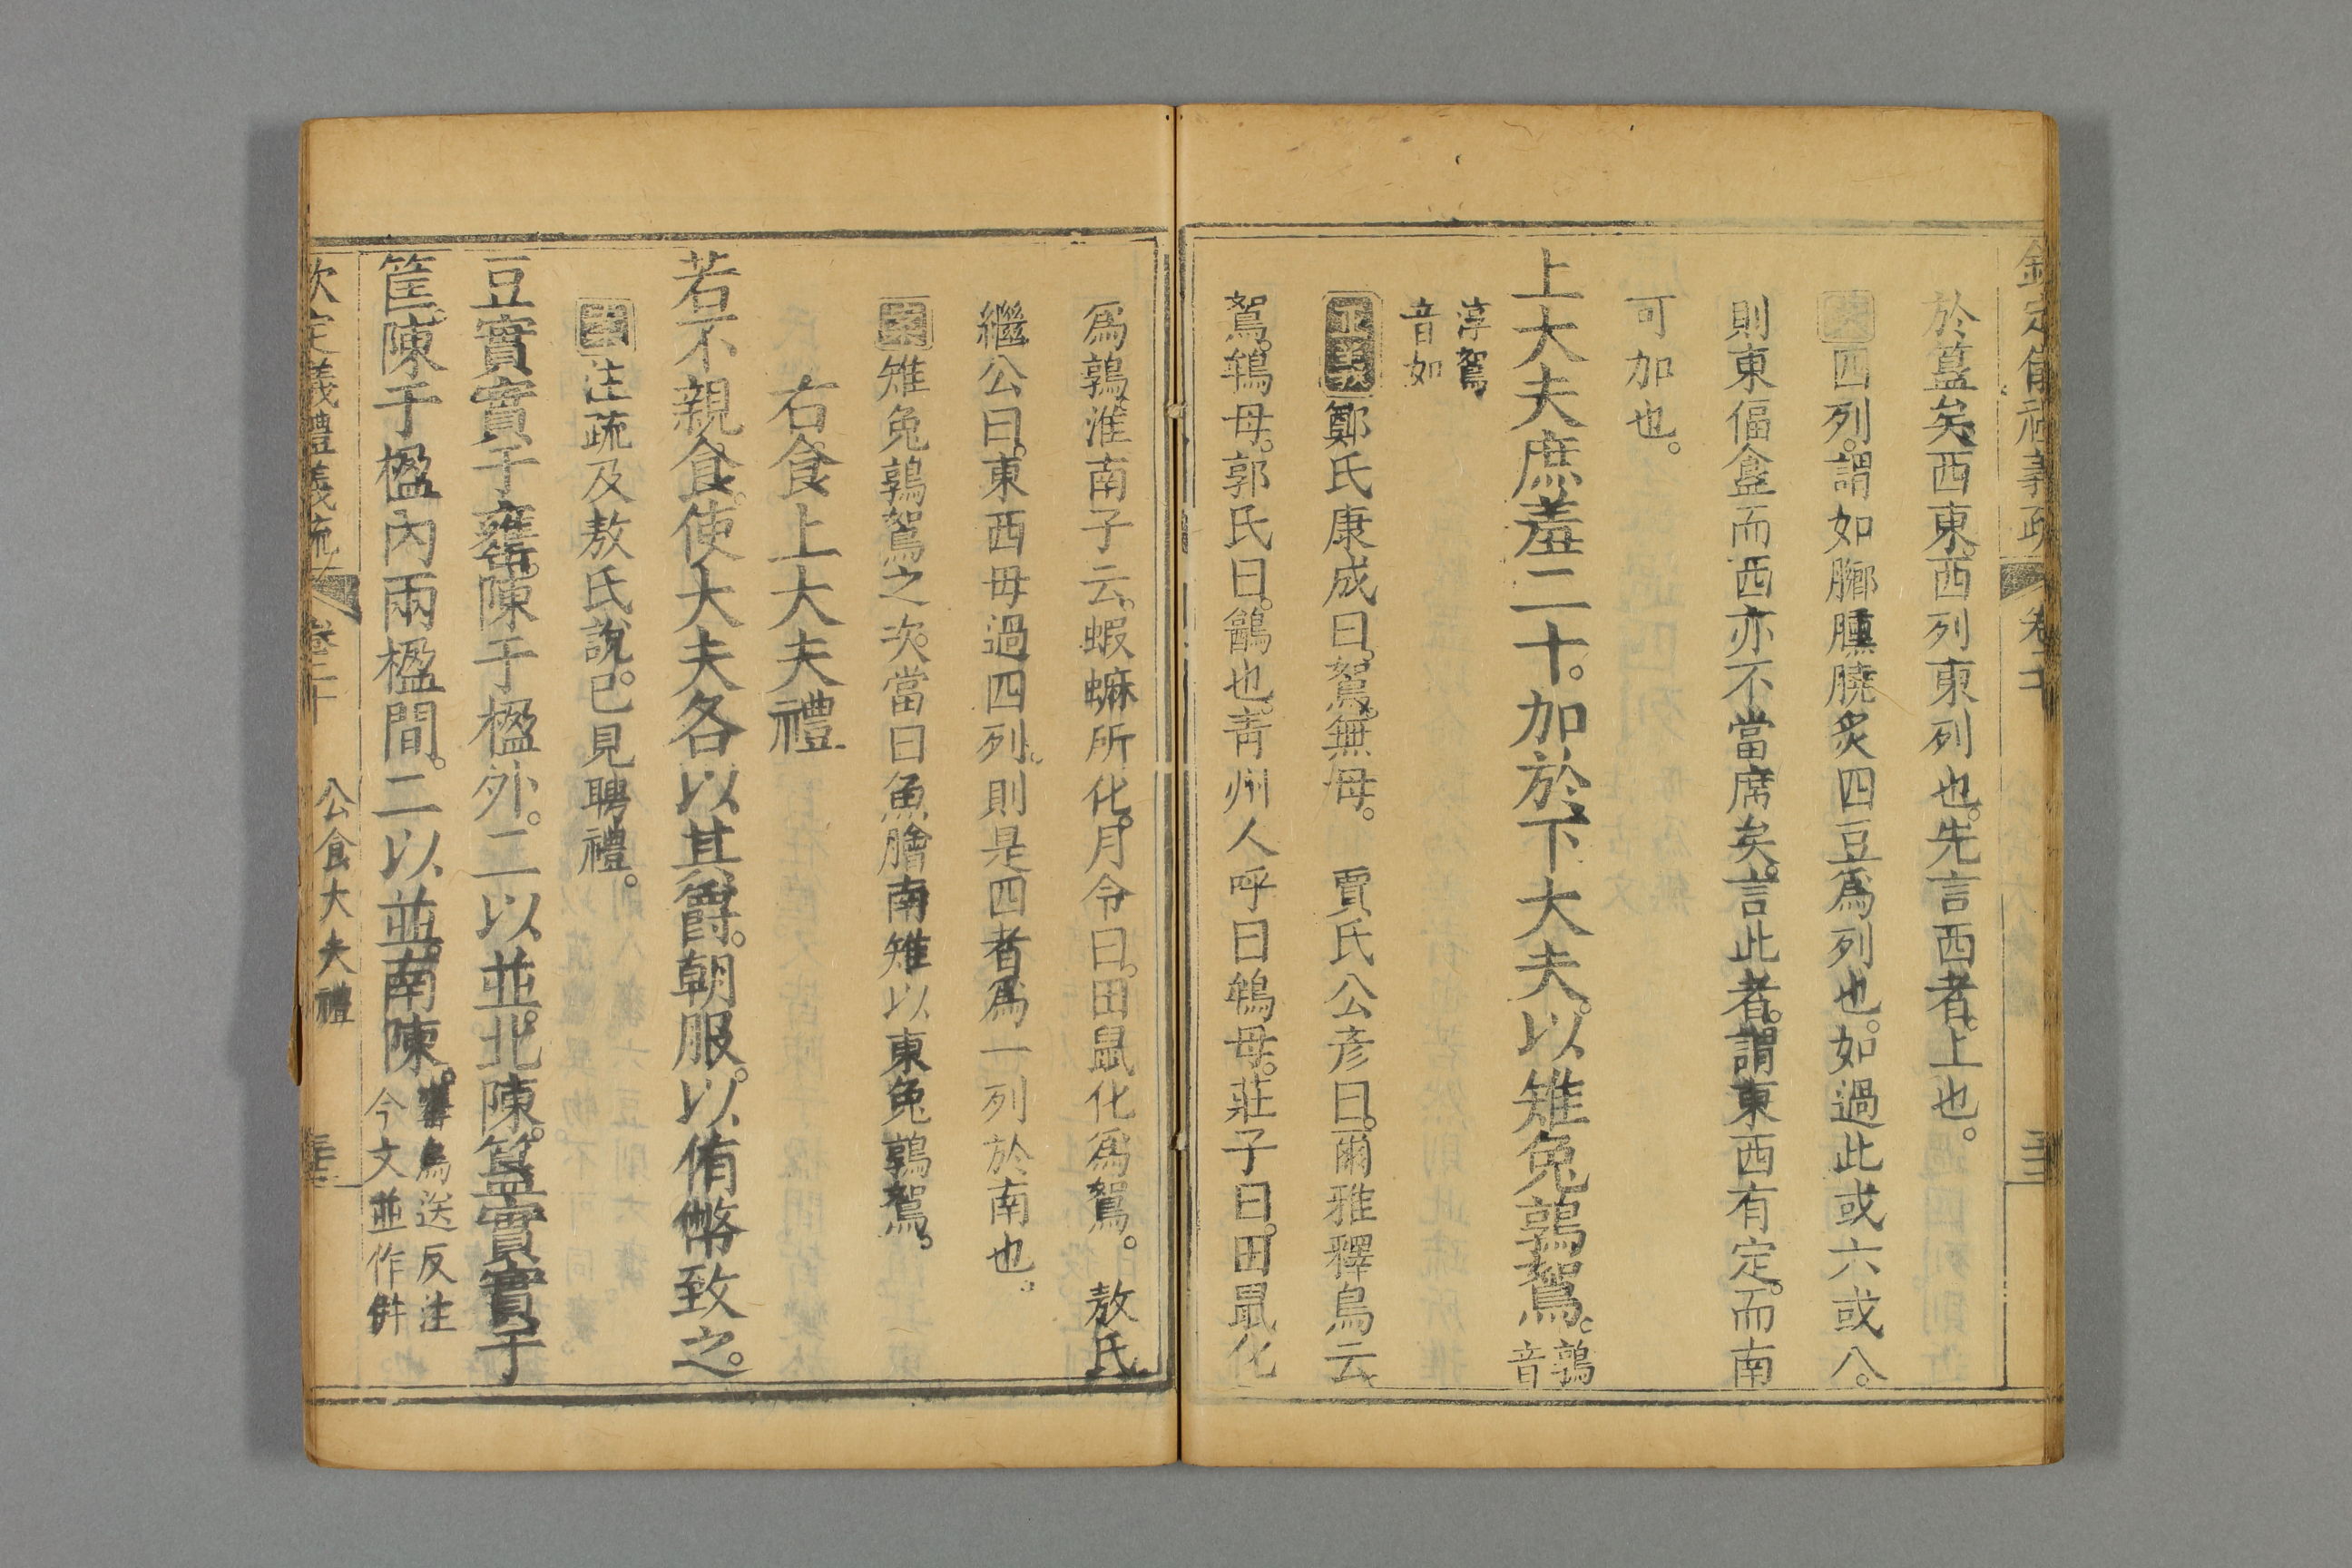 欽定儀禮義疏 卷二十
於簋矣西東西列東列也先言西者上也。
案四列謂如膷臐膮炙四豆爲列也。如過此或六或八。
則東偪簋而西亦不當席矣。言此者謂東西有定。而南
可加也。
上大夫庶羞二十。加於下大夫。以雉兔鶉鴽。鶉音
淳鴽音如
正義鄭氏康成曰。鴽無母。 賈氏公彥曰。爾雅釋鳥云
鴽鴾母。郭氏曰。䳺也。靑州人呼曰鴾母。莊子曰。田鼠化
爲鶉淮南子云。蝦蟆所化。月令曰。田鼠化爲鴽。 敖氏
繼公曰。東西毋過四列。則是四者爲一列於南也。
案雉兔鶉鴽之次。當曰魚膾南雉以東兔鶉鴽。
右食上大夫禮
若不親食。使大夫各以其爵。朝服。以侑幣致之。
案注疏及敖氏說。已見聘禮。
豆實實于甕。陳于楹外。二以並。北陳。簋實實于
筐。陳于楹內兩楹間。二以並。南陳。甕烏送反注今文並作倂
欽定義禮義疏 卷二十 公食大夫禮